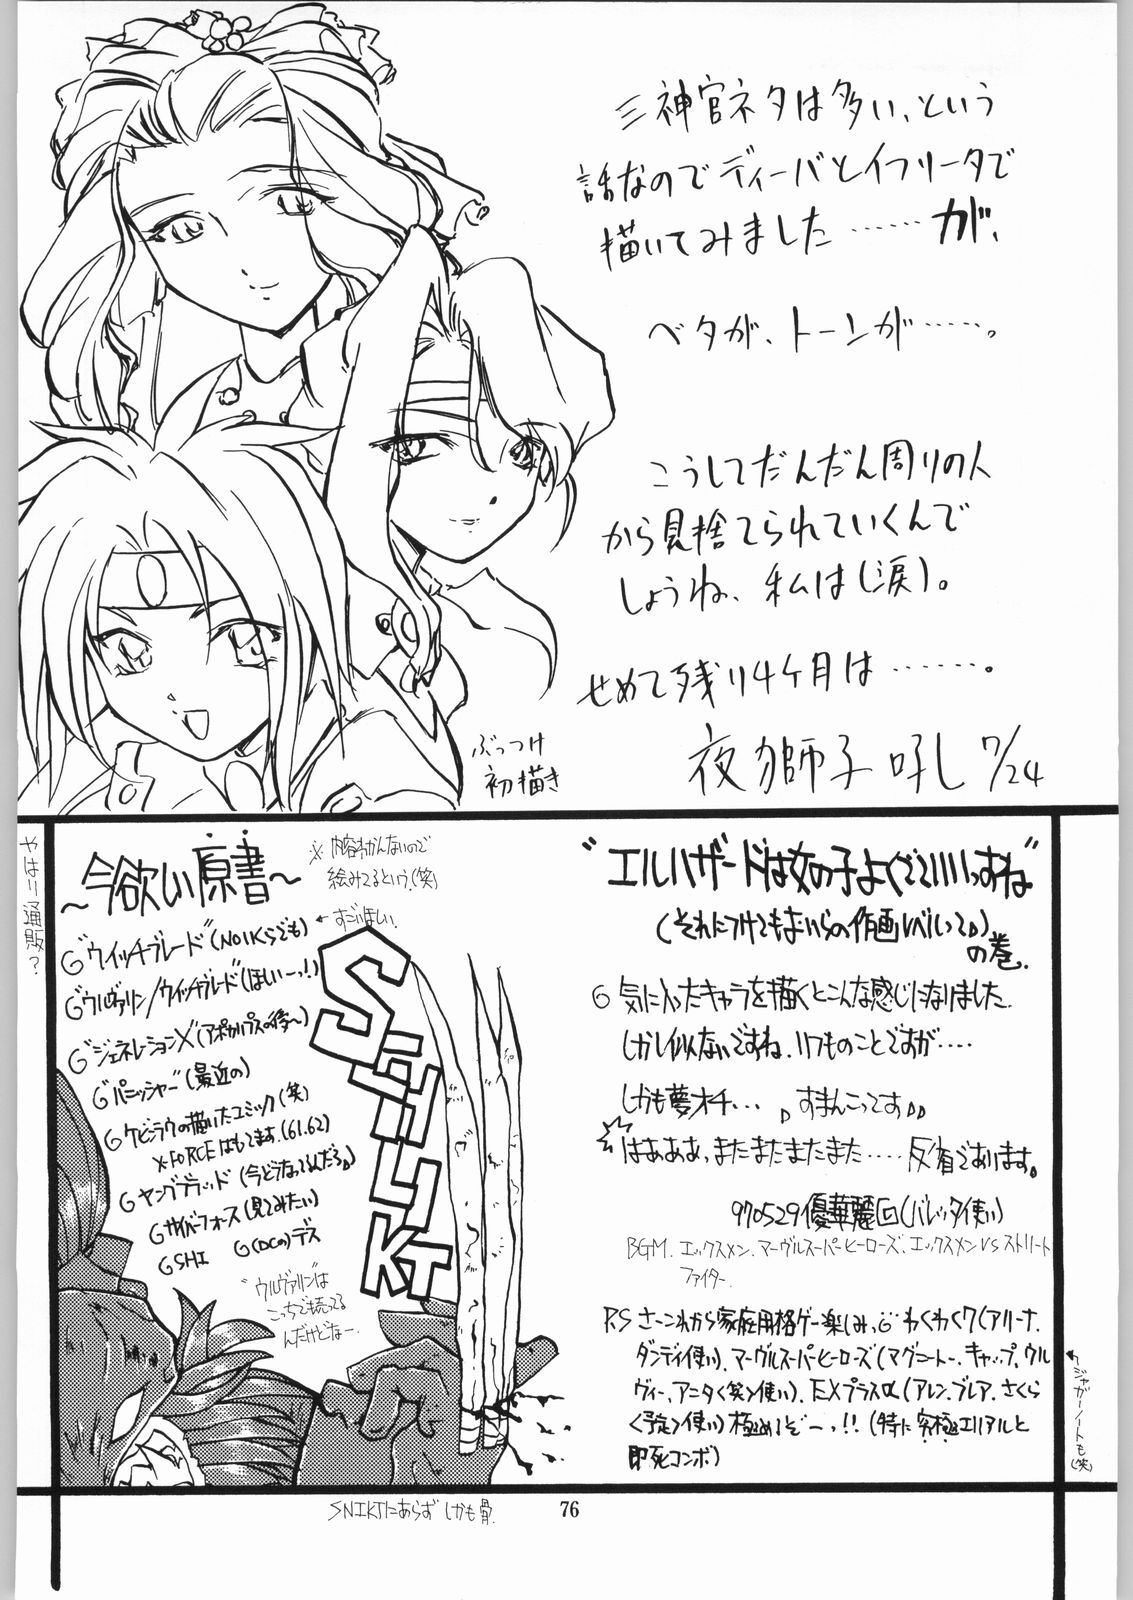 三神官ネタは多い、という
話なのでディーバとイフリータで
描いてみました……が、
ベタが、トーンが……。
こうしてだんだん周りの人
から見捨てられていくんで
しょうね、私は(涙)。
せめて残り4ケ月は……。
ぶっつけ
初描き
夜獅子吼し 7/24
やはり通販?
〜今欲しい原書〜
※内容わかんないので
絵みてるという(笑)
G"ウイッチブレード"(NO1Kらでも)
←すごいほしい
G"ウルヴァリン/ウイッチブレード"(ほしいーっ!!)
G"ジェネレーションX"(アポカリプスの後〜)
G"パニッシャー"(最近の)
Gケビンラウの描いたコミック(笑)
X-FORCEはもてます。(61.62)
Gヤングブラッド(今どうなってるんだろ)
Gサイバーフォース(見てみたい)
GSHI G(DCの)デス
"ウルヴァリン"は
こっちで売ってる
んだけどなー
"エルハザードは女の子よくていいっすね"
(それにつけてもおいらの作画レベルって)
の巻。
G 気に入ったキャラを描くとこんな感じになりました。
しかし似ないですね、いつものことですが....
しかも夢オチ... すまんこってす
はあああ、またまたまたまた....反省であります。
970529優華麗(バレッタ使い)
BGM.エックスメン、マーヴルスーパーヒーローズ、エックスメンVSストリート
ファイター
PS さーこれから家庭用格ゲー楽しみっ わくわく7(アリーナ、
ダンディ使い)、マーヴルスーパーヒーローズ(マグニートー、キャップ、ウル
ヴィー、アニタ<笑>使い)、EXプラスα(アレン、ブレア、さくら
<予定>使い)極めるぞーっ!!(特に究極エリアルと
即死コンボ)
←ジャガーノートも(笑)
SNIKTにあらず しかも骨
76